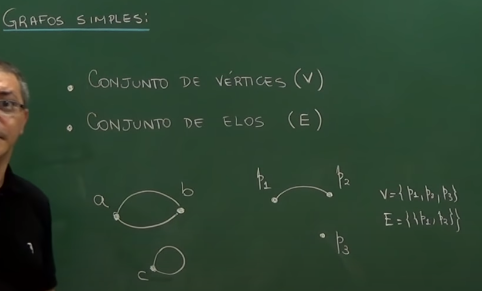 GRAFOS SIMPLES:
• CONJUNTO DE VÉRTICES (V)
• CONJUNTO DE ELOS (E)
a b
c
p₁ p₂
p₃
V={p₁,p₂,p₃}
E={{p₁,p₂}}